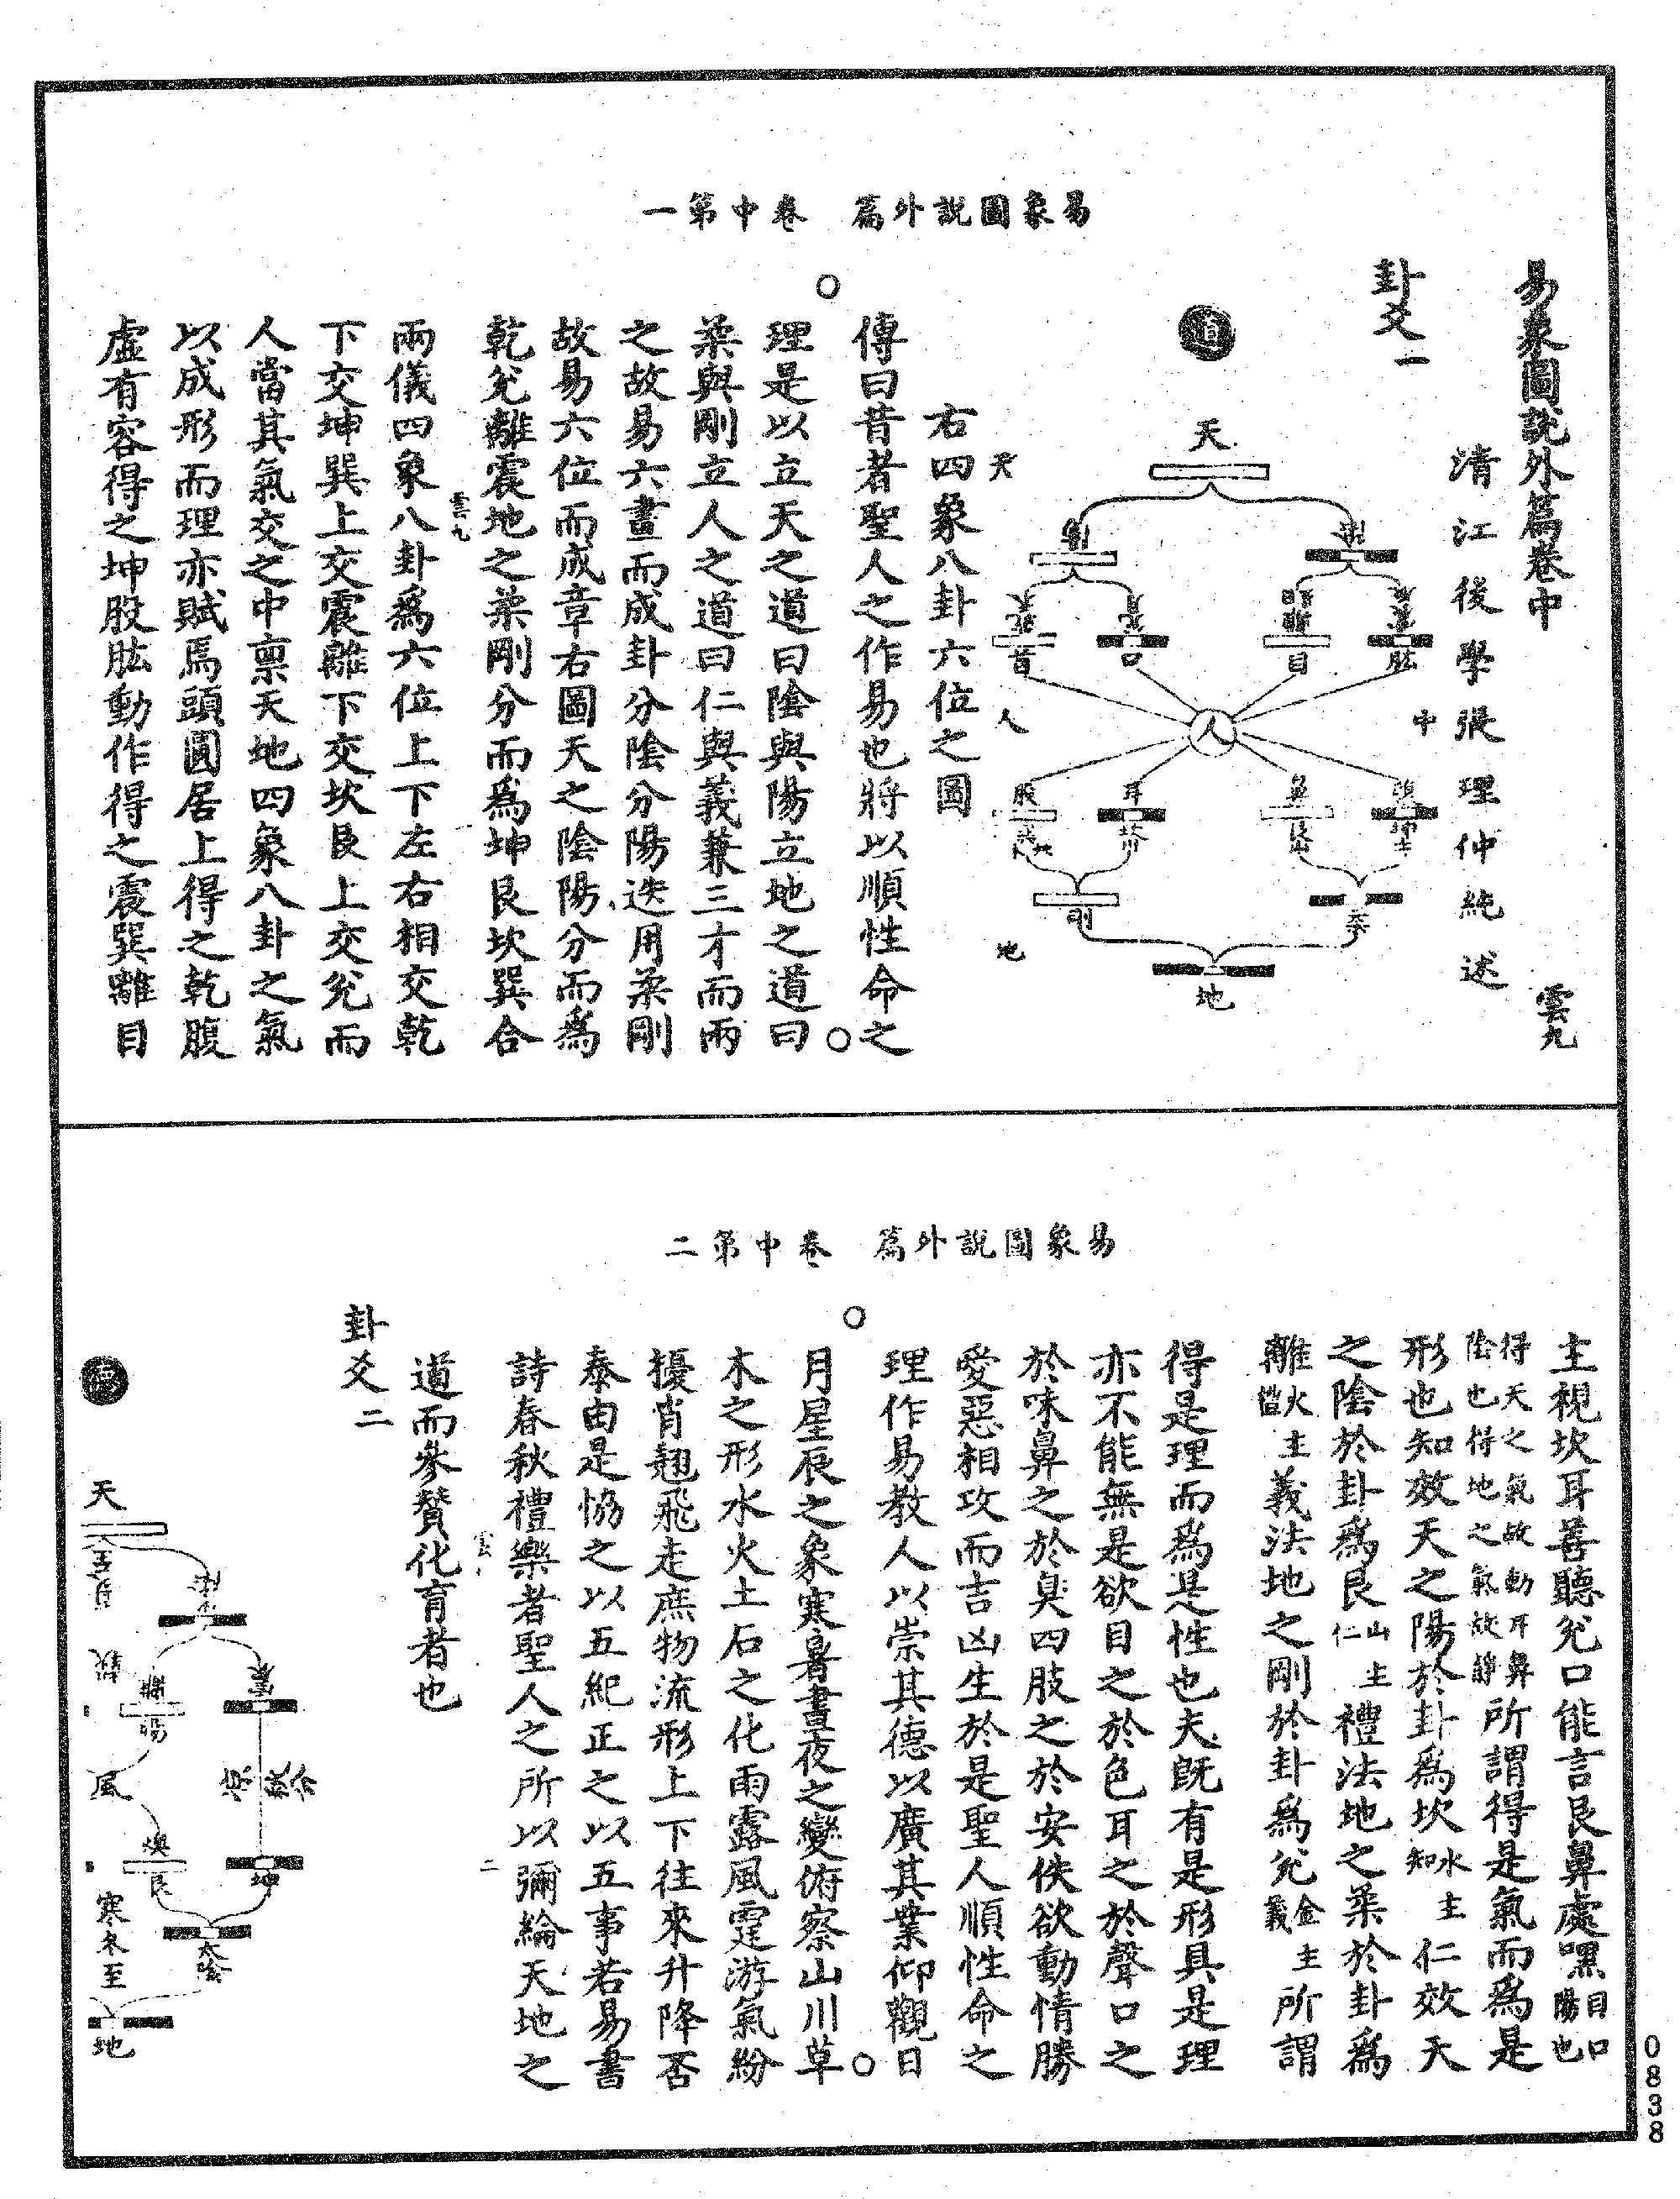 易象圖說外篇　卷中第一
易象圖說外篇卷中　雲九
清江後學張理仲純述
卦爻一
天
目
肱
首
口
中
人
人
天
股
耳
鼻
剛
柔
地
地
右四象八卦六位之圖
傳曰昔者聖人之作易也將以順性命之
理是以立天之道曰陰與陽立地之道曰
柔與剛立人之道曰仁與義兼三才而兩
之故易六畫而成卦分陰分陽迭用柔剛
故易六位而成章右圖天之陰陽分而爲
乾兌離震地之柔剛分而爲坤艮坎巽合
雲九
兩儀四象八卦爲六位上下左右相交乾
下交坤巽上交震離下交坎艮上交兌而
人當其氣交之中禀天地四象八卦之氣
以成形而理亦賦焉頭圓居上得之乾腹
虛有容得之坤股肱動作得之震巽離目
易象圖說外篇　卷中第二
主視坎耳善聽兌口能言艮鼻處嘿目口陽也
得天之氣故動耳鼻陰也得地之氣故靜所謂得是氣而爲是
形也知效天之陽於卦爲坎水主知仁效天
之陰於卦爲艮山主仁禮法地之柔於卦爲
離火主禮義法地之剛於卦爲兌金主義所謂
得是理而爲是性也夫旣有是形具是理
亦不能無是欲目之於色耳之於聲口之
於味鼻之於臭四肢之於安佚欲動情勝
愛惡相攻而吉凶生於是聖人順性命之
理作易教人以崇其德以廣其業仰觀日
月星辰之象寒暑晝夜之變俯察山川草
木之形水火土石之化雨露風霆游氣紛
擾肖翹飛走庶物流形上下往來升降否
泰由是恊之以五紀正之以五事若易書
詩春秋禮樂者聖人之所以彌綸天地之
道而參贊化育者也
卦爻二
天
風
坤
艮
寒冬至
地
0838